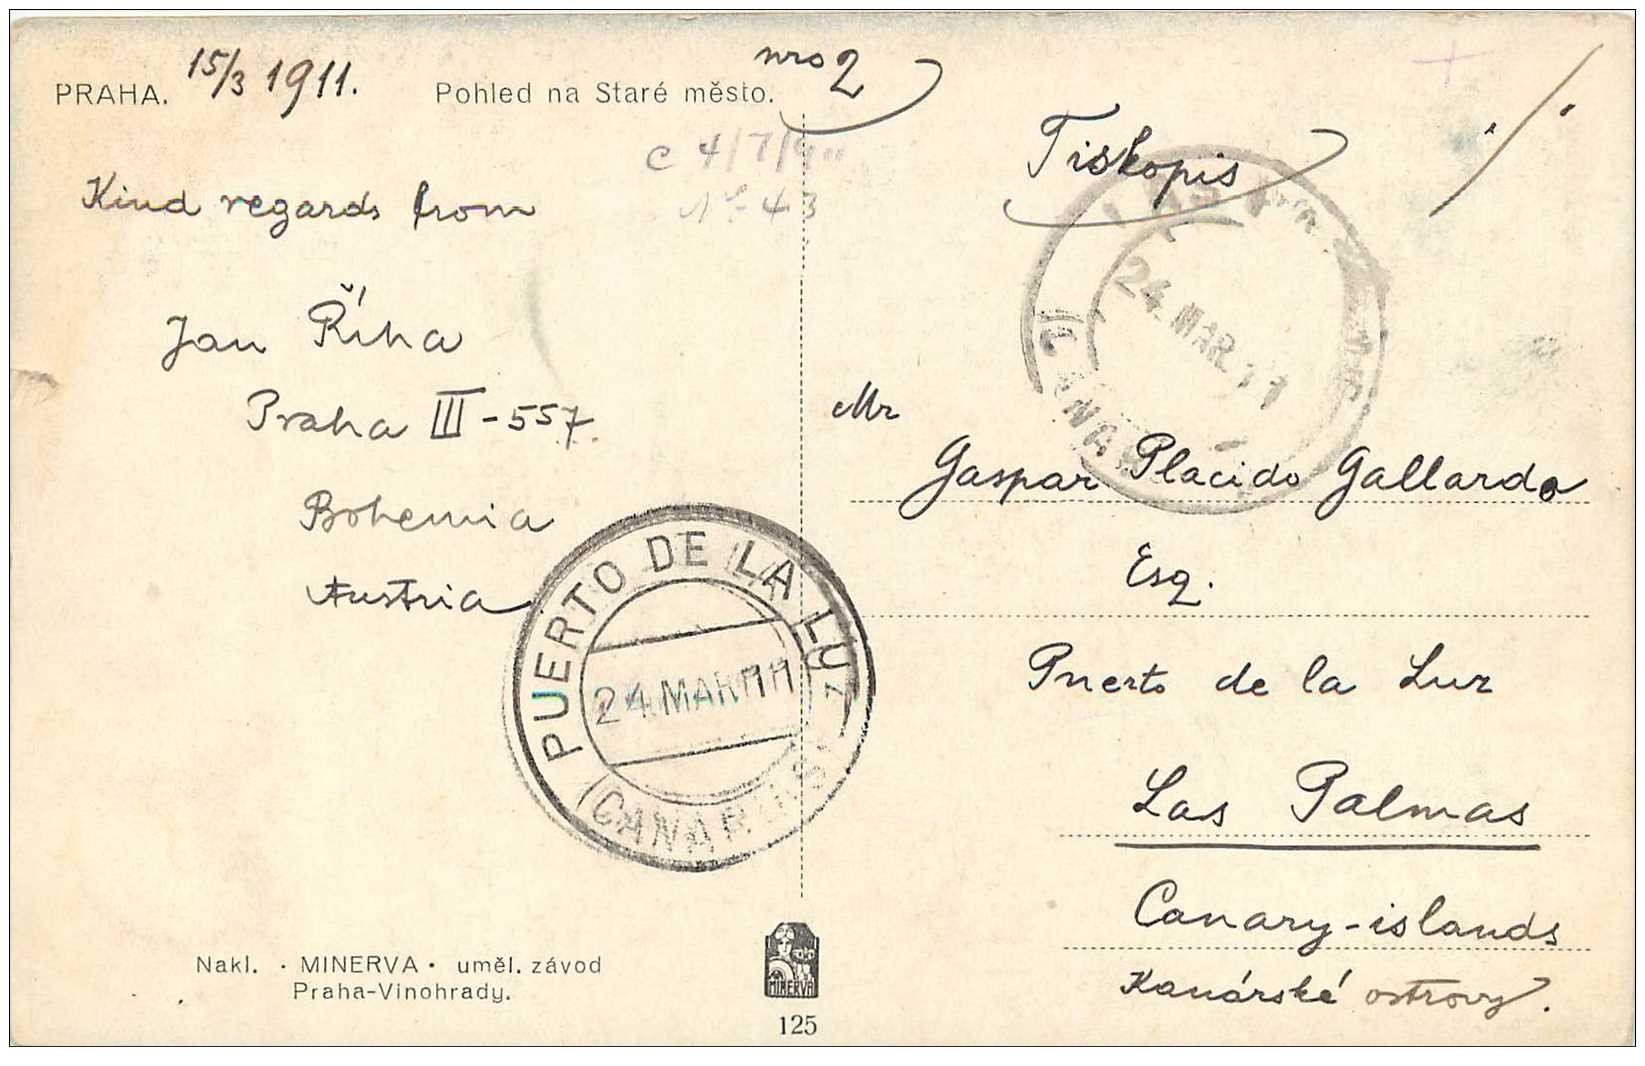 PRAHA. 15/3 1911. Pohled na Staré město.
nro 2
C 4/7/911
Nº 43
Kind regards from
Jan Říha
Praha III-557.
Bohemia
Austria
Tiskopis
24.MAR.11
Mr
Gaspar Placido Gallardo
Esq.
Puerto de la Luz
Las Palmas
Canary-islands
Kanárské ostrovy.
PUERTO DE LA LUZ
24.MAR 11
(CANARIAS)
Nakl. · MINERVA · uměl. závod
Praha-Vinohrady.
MINERVA
125